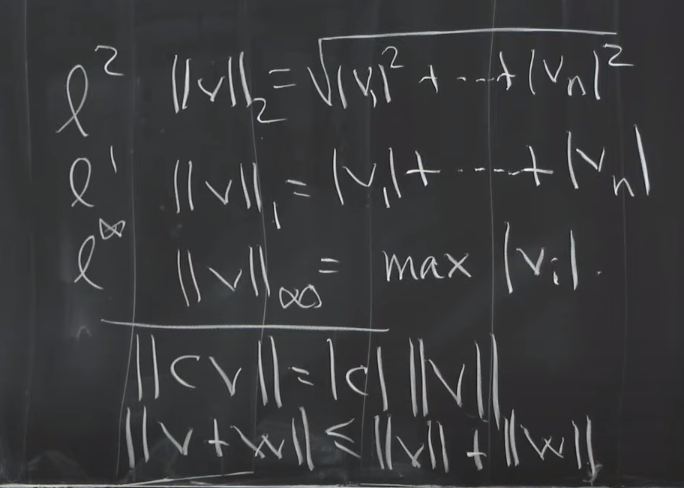 ℓ² ||v||₂ = √(|v₁|² + ··· + |vₙ|²)
ℓ¹ ||v||₁ = |v₁| + ··· + |vₙ|
ℓ^∞ ||v||_∞ = max |vᵢ|.
||cv|| = |c| ||v||
||v + w|| ≤ ||v|| + ||w||